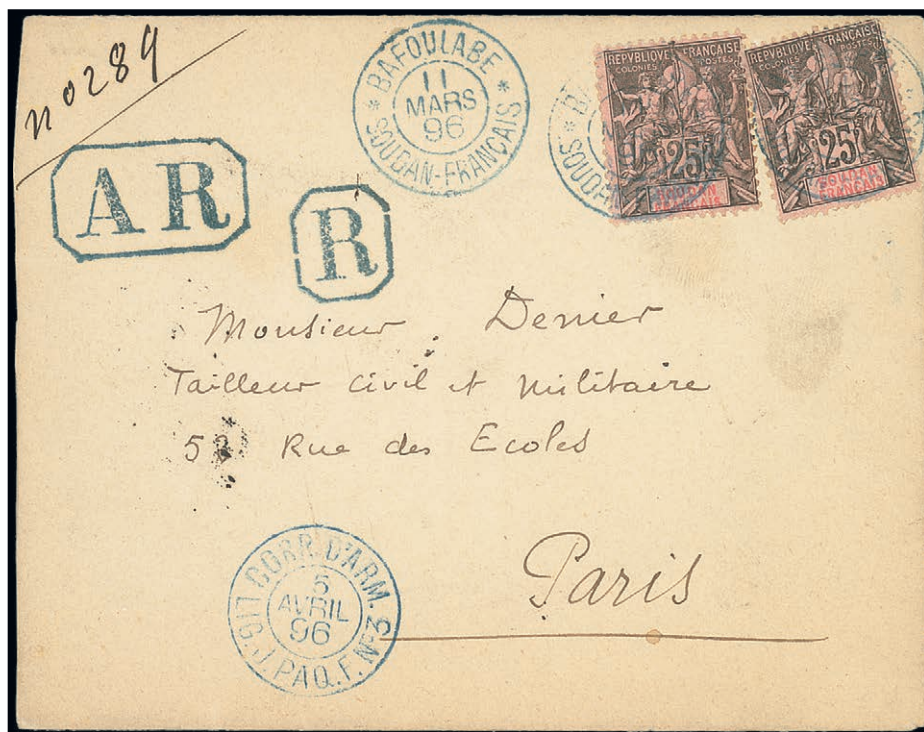 no 289
BAFOULABE
11
MARS
96
SOUDAN-FRANÇAIS
REPVBLIQVE FRANÇAISE
COLONIES POSTES
25
SOUDAN
FRANÇAIS
REPVBLIQVE FRANÇAISE
COLONIES POSTES
25
SOUDAN
FRANÇAIS
AR
R
Monsieur Denier
Tailleur civil et militaire
52 Rue des Ecoles
Paris
CORR. D'ARM.
5
AVRIL
96
LIG. J. PAQ. F. Nº3